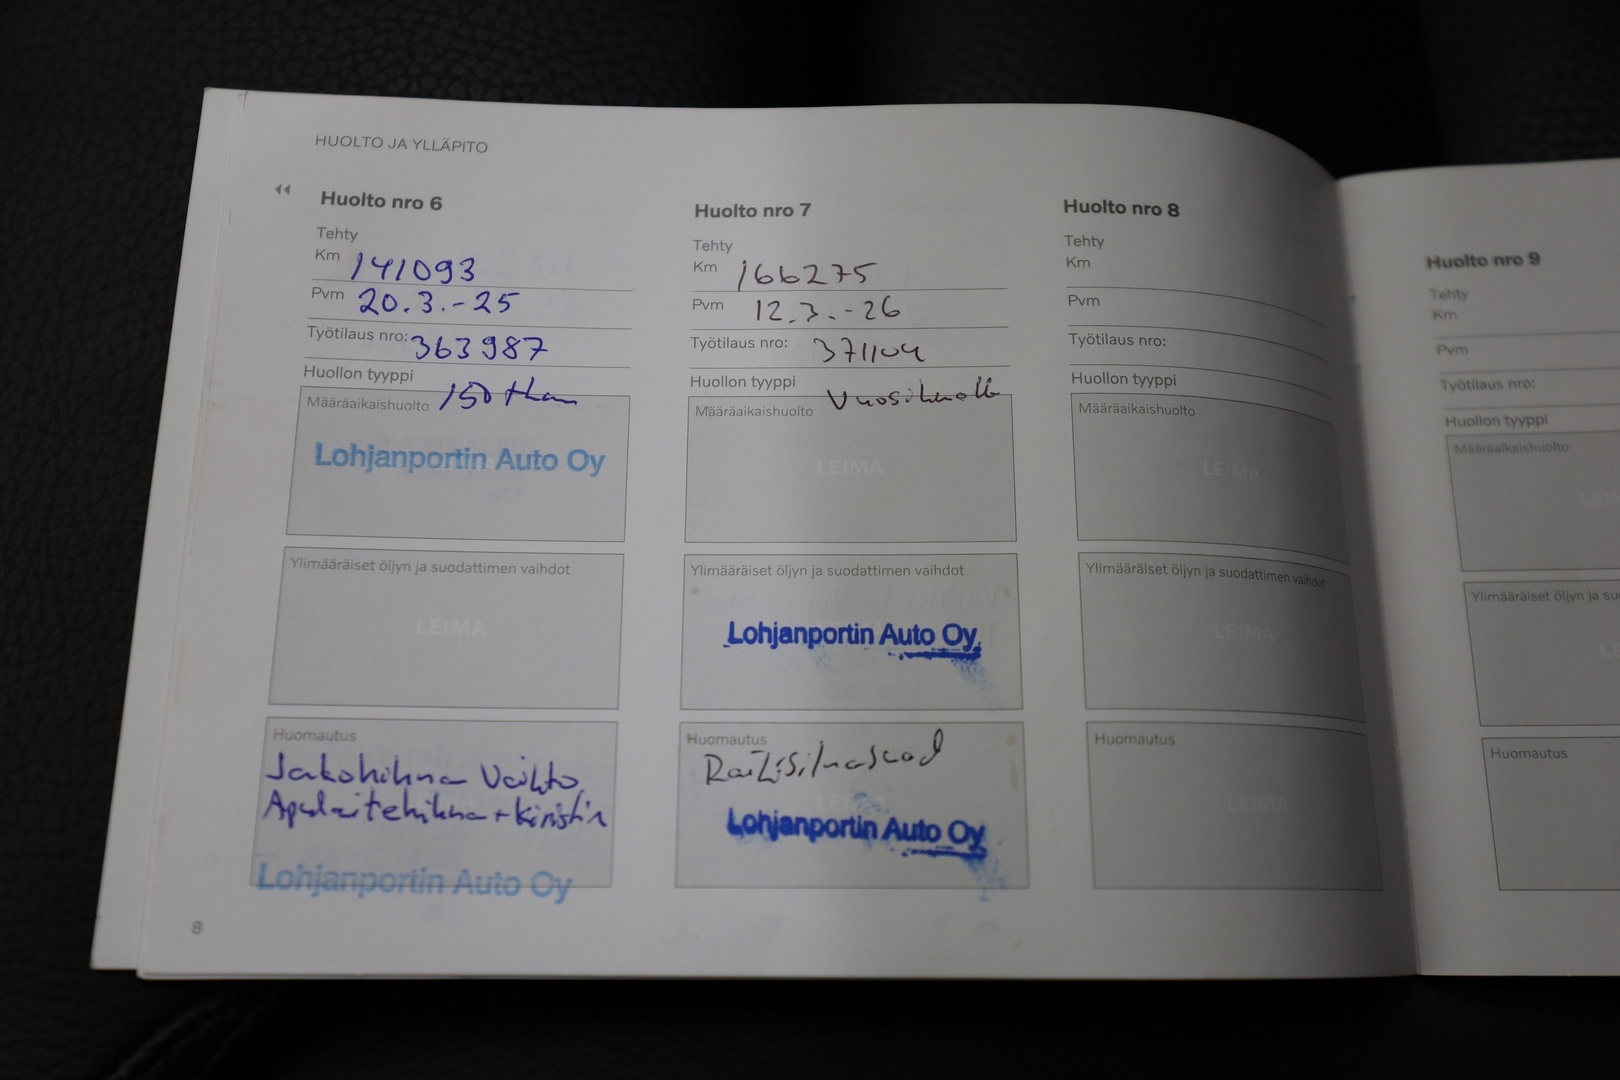 HUOLTO JA YLLÄPITO
Huolto nro 6
Tehty
Km 141093
Pvm 20.3.-25
Työtilaus nro: 363987
Huollon tyyppi
Määräaikaishuolto 150 tkm
Lohjanportin Auto Oy
Ylimääräiset öljyn ja suodattimen vaihdot
LEIMA
Huomautus
Jakohihna Vaihto,
Apulaitehihna + kiristin
Lohjanportin Auto Oy
8
Huolto nro 7
Tehty
Km 166275
Pvm 12.3.-26
Työtilaus nro: 371104
Huollon tyyppi Vuosihuolto
Määräaikaishuolto
LEIMA
Ylimääräiset öljyn ja suodattimen vaihdot
Lohjanportin Auto Oy
Huomautus
LEIMA
Lohjanportin Auto Oy
Huolto nro 8
Tehty
Km
Pvm
Työtilaus nro:
Huollon tyyppi
Määräaikaishuolto
LEIMA
Ylimääräiset öljyn ja suodattimen vaihdot
LEIMA
Huomautus
LEIMA
Huolto nro 9
Tehty
Km
Pvm
Työtilaus nro:
Huollon tyyppi
Määräaikaishuolto
LEI
Ylimääräiset öljyn ja su
LE
Huomautus